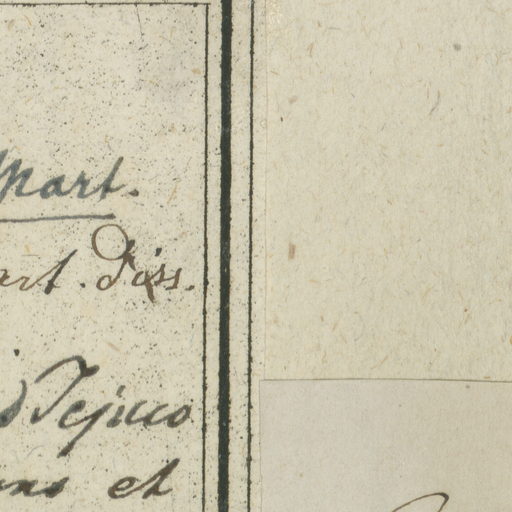 Mart.
art. diss.
Tejuco
et